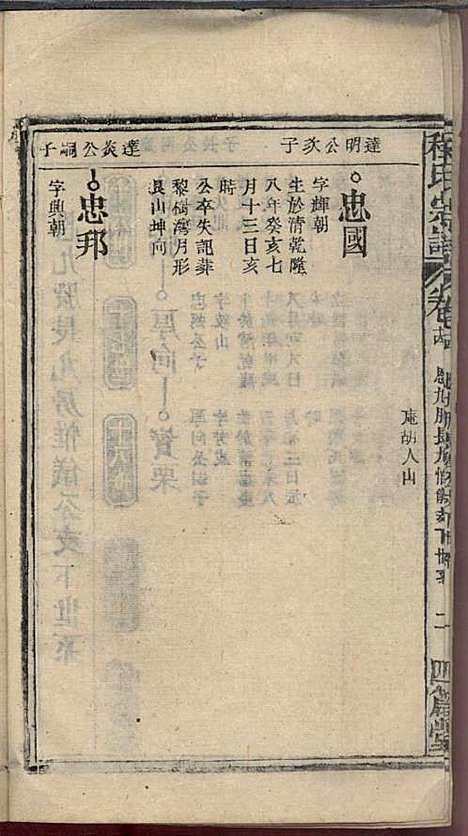 程氏宗譜
卷
四箴堂
庵胡人山
達明公次子
忠國
字輝朝
生於清乾隆
八年癸亥七
月十三日亥
時
公卒失記葬
黎樹灣月形
艮山坤向
達炎公嗣子
忠邦
字興朝